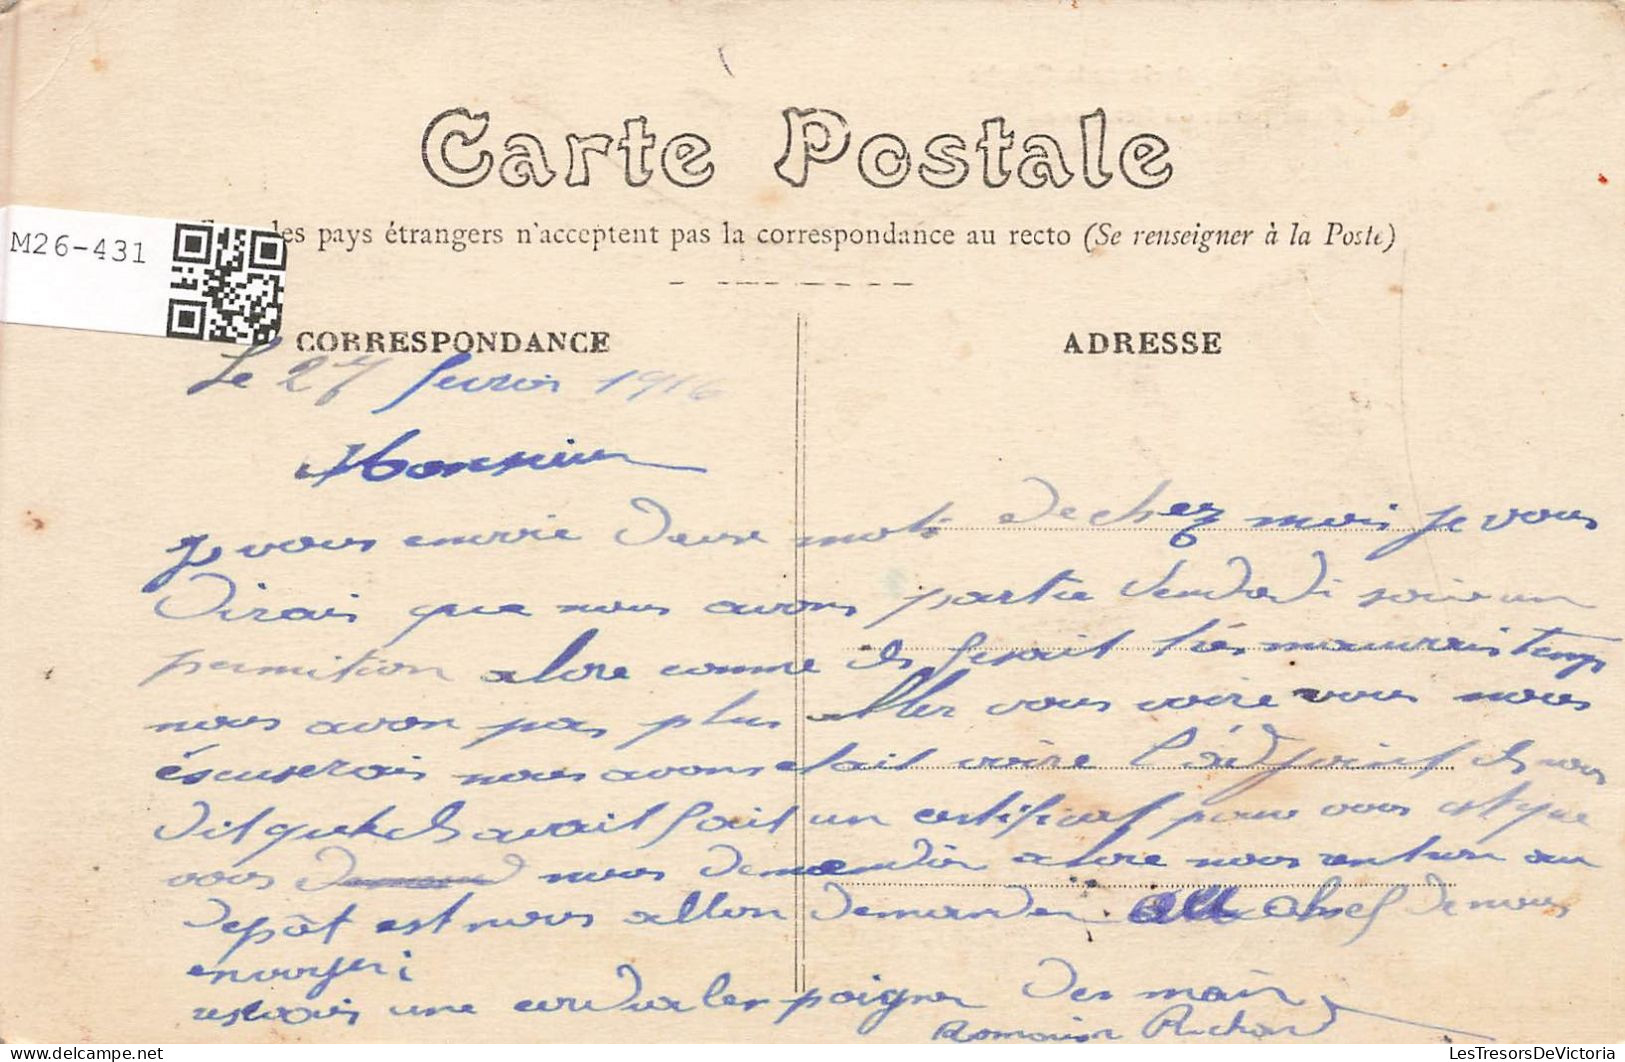 Carte Postale
M26-431
les pays étrangers n'acceptent pas la correspondance au recto (Se renseigner à la Poste)
CORRESPONDANCE
ADRESSE
Le 27 fevrier 1916
Monsieur
je vous envoie deux mots de chez moi je vous
dirais que nous avons partie vendredi soire en
permition alore comme il fesait très mauvrais temps
nous avon pas plus aller vous voire vous nous
éscuserais nous avons etait voire l'adjoint il nous
dit quil avait fait un certificat pour vous est que
vous nous alore nous rentron au
depôt est nous allon demander au chef de nous
envoyer;
reservais une cordiales poigner des main
Romain Richard
© LesTresorsDeVictoria - delcampe.net
LesTresorsDeVictoria